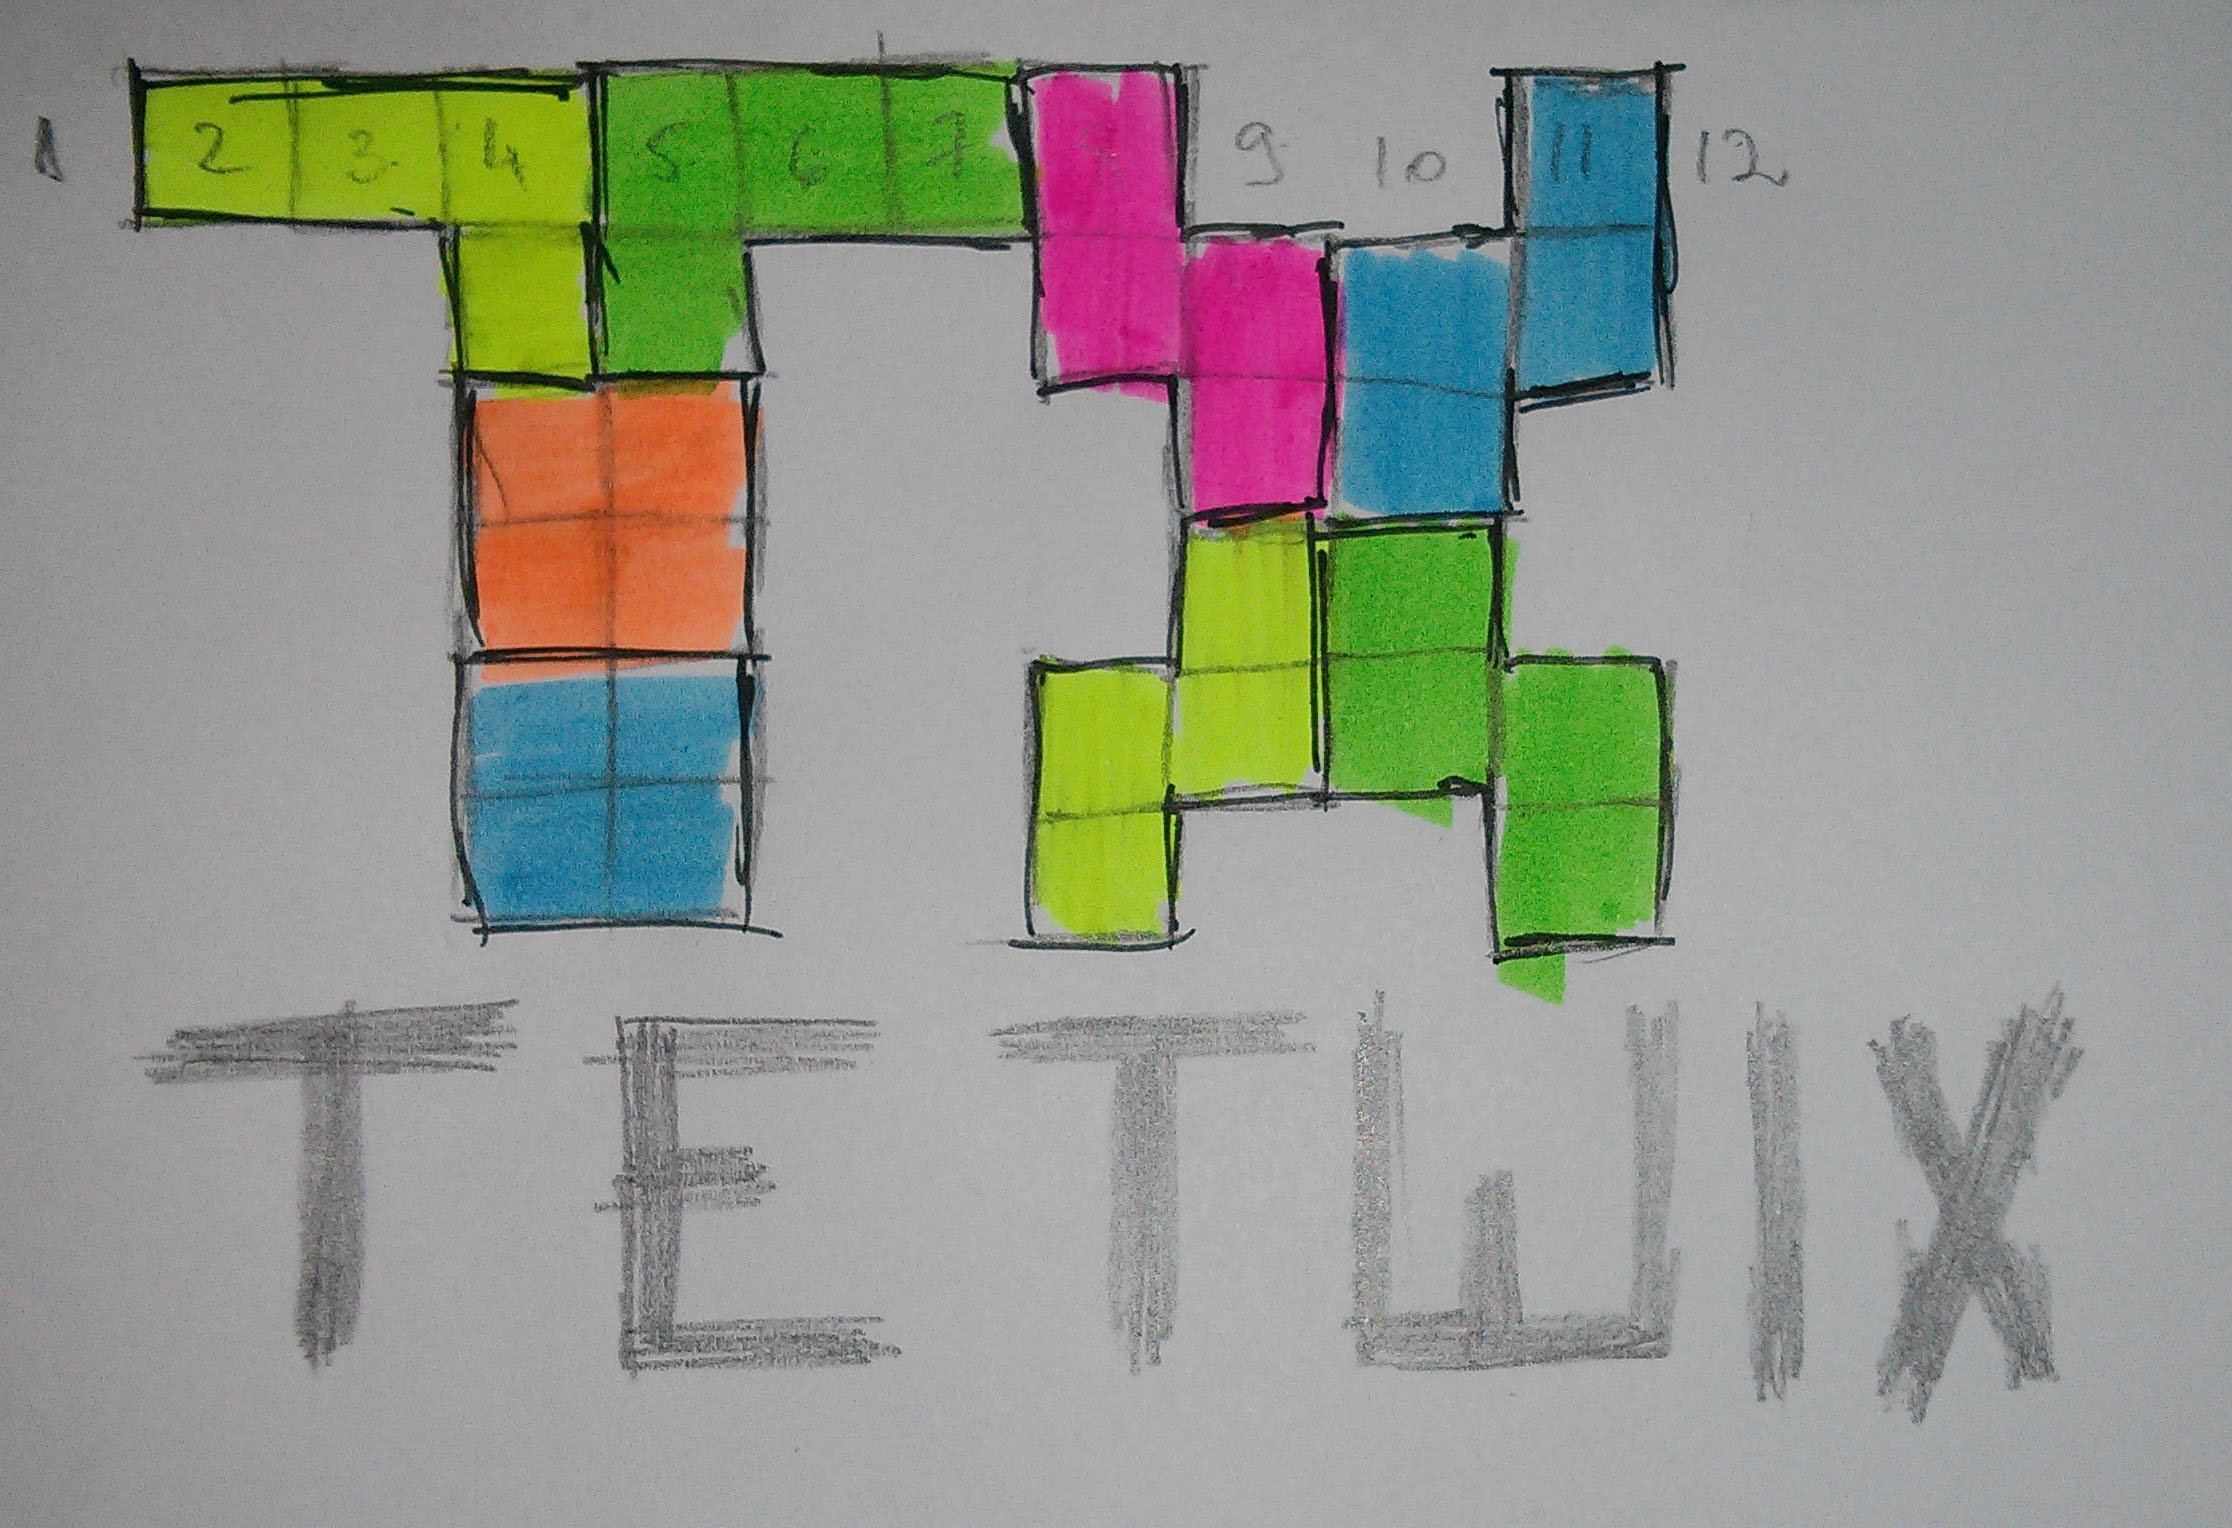 1 2 3 4 5 6 7 8 9 10 11 12
TETWIX